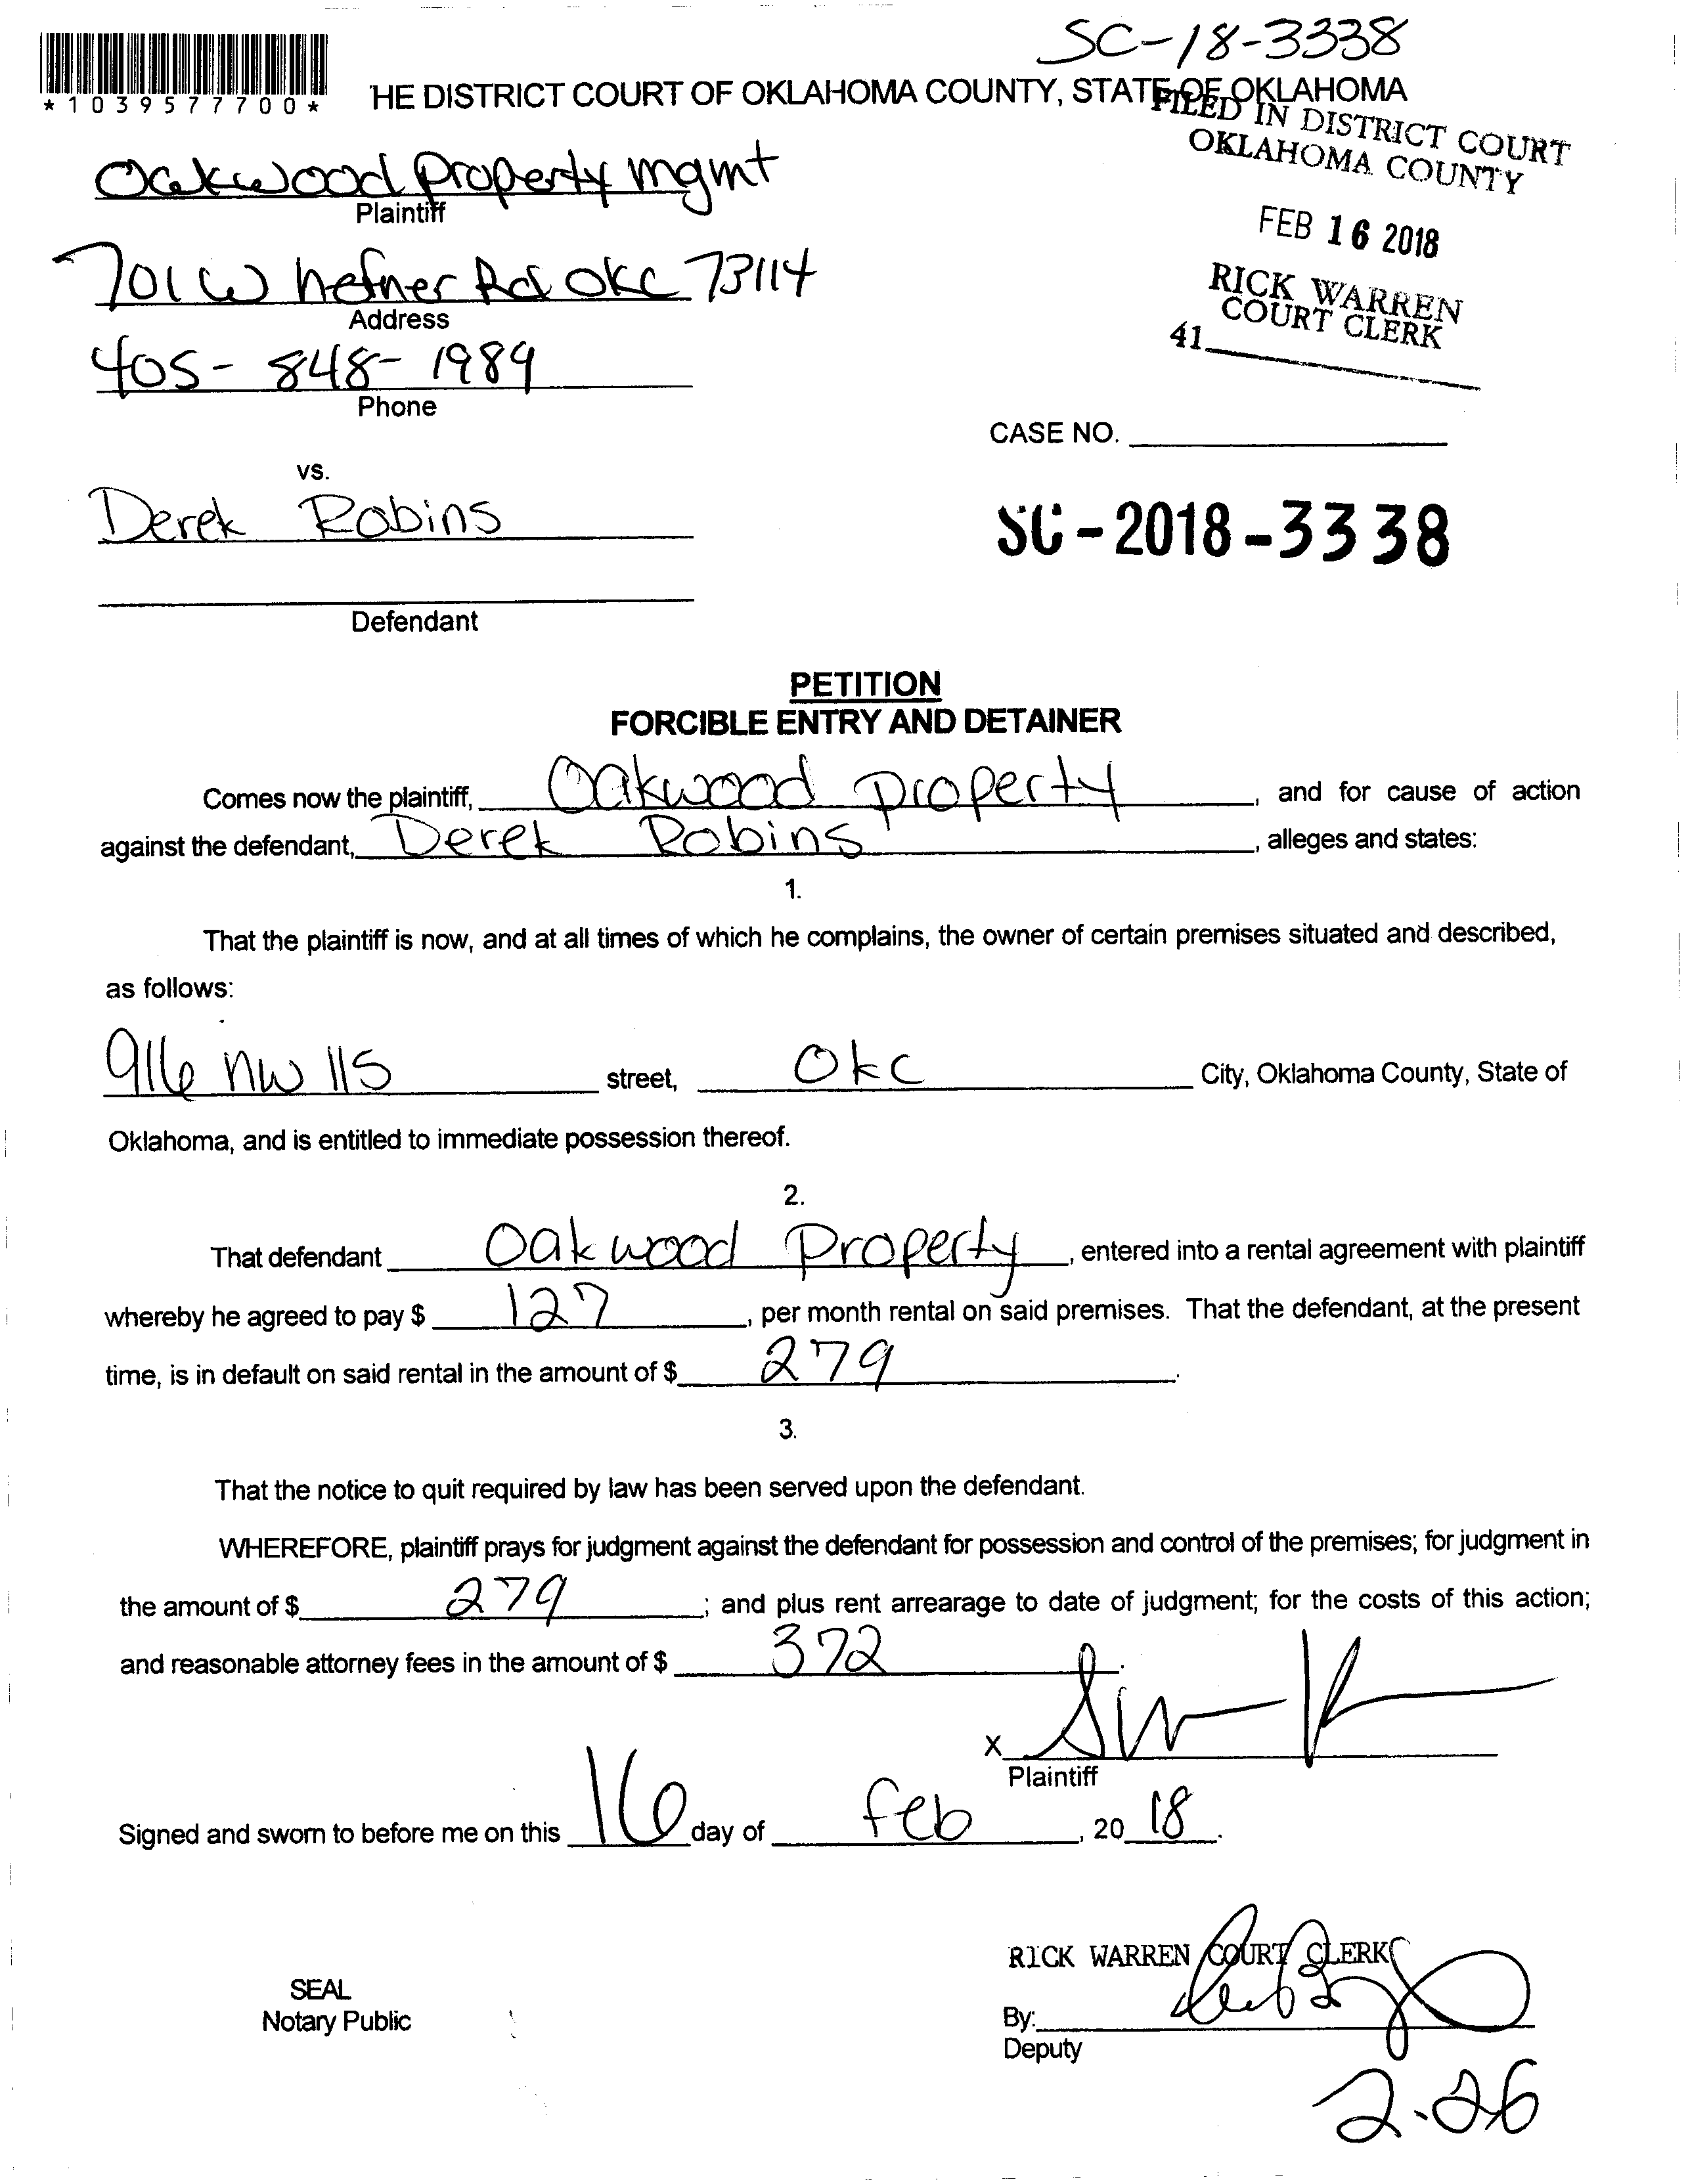 SC-18-3338
*1039577700*
HE DISTRICT COURT OF OKLAHOMA COUNTY, STATE OF OKLAHOMA
FILED IN DISTRICT COURT
OKLAHOMA COUNTY
FEB 16 2018
RICK WARREN
COURT CLERK
41
Oakwood Property mgmt
Plaintiff
701 W hefner Rd OKC 73114
Address
405-848-1989
Phone
CASE NO.
vs.
Derek Robins
SC-2018-3338
Defendant
PETITION
FORCIBLE ENTRY AND DETAINER
Comes now the plaintiff, Oakwood Property, and for cause of action
against the defendant, Derek Robins, alleges and states:
1.
That the plaintiff is now, and at all times of which he complains, the owner of certain premises situated and described,
as follows:
916 NW 115 street, OKC City, Oklahoma County, State of
Oklahoma, and is entitled to immediate possession thereof.
2.
That defendant Oakwood Property, entered into a rental agreement with plaintiff
whereby he agreed to pay $ 127, per month rental on said premises. That the defendant, at the present
time, is in default on said rental in the amount of $ 279.
3.
That the notice to quit required by law has been served upon the defendant.
WHEREFORE, plaintiff prays for judgment against the defendant for possession and control of the premises; for judgment in
the amount of $ 279; and plus rent arrearage to date of judgment; for the costs of this action;
and reasonable attorney fees in the amount of $ 372.
X
Plaintiff
Signed and sworn to before me on this 16 day of Feb, 20 18.
RICK WARREN COURT CLERK
SEAL
Notary Public
By:
Deputy
2-26